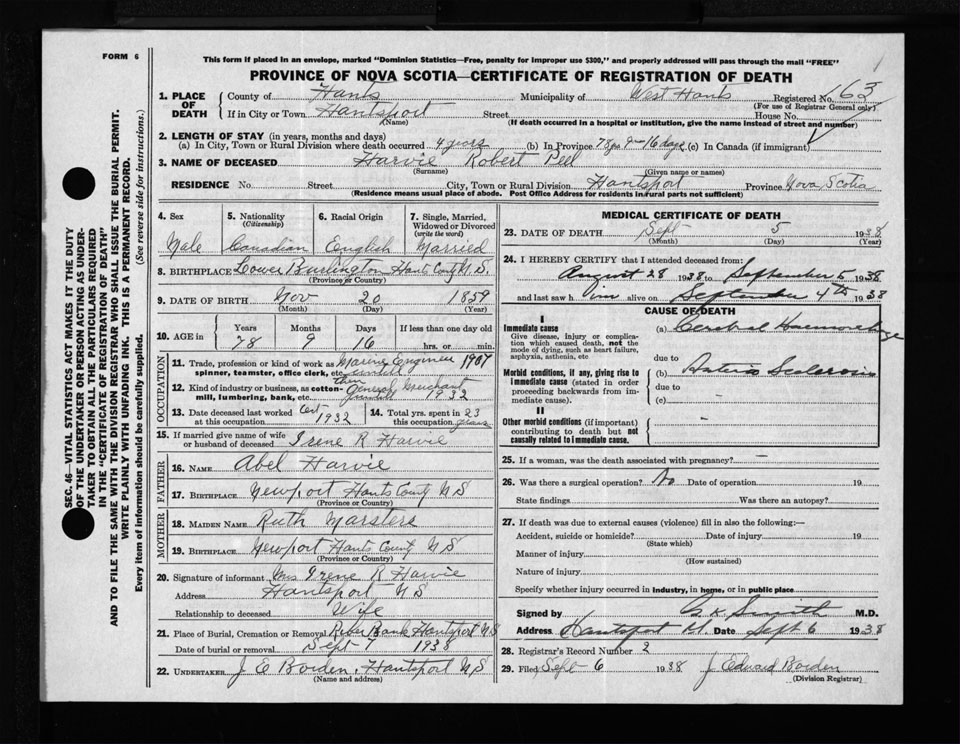 FORM 6
This form if placed in an envelope, marked "Dominion Statistics—Free, penalty for improper use $300," and properly addressed will pass through the mail "FREE"
PROVINCE OF NOVA SCOTIA—CERTIFICATE OF REGISTRATION OF DEATH
1. PLACE OF DEATH
County of Hants Municipality of West Hants Registered No. 163
(For use of Registrar General only)
If in City or Town Hantsport Street House No.
(Name) (If death occurred in a hospital or institution, give the name instead of street and number)
2. LENGTH OF STAY (in years, months and days)
(a) In City, Town or Rural Division where death occurred 4 years (b) In Province 78 9 16 days (c) In Canada (if immigrant)
3. NAME OF DECEASED Harvie Robert Peel
(Surname) (Given name or names)
RESIDENCE No. Street City, Town or Rural Division Hantsport Province Nova Scotia
(Residence means usual place of abode. Post Office Address for residents in rural parts not sufficient)
4. Sex 5. Nationality (Citizenship) 6. Racial Origin 7. Single, Married, Widowed or Divorced (write the word)
Male Canadian English Married
8. BIRTHPLACE Lower Burlington Hants County N.S.
(Province or Country)
9. DATE OF BIRTH Nov 20 1859
(Month) (Day) (Year)
10. AGE in Years Months Days If less than one day old
78 9 16 hrs. or min.
OCCUPATION
11. Trade, profession or kind of work as Marine Engineer 1907
spinner, teamster, office clerk, etc. until
12. Kind of industry or business, as cotton- then general merchant
mill, lumbering, bank, etc. until 1932
13. Date deceased last worked at this occupation 1932 14. Total yrs. spent in this occupation 23 years
15. If married give name of wife or husband of deceased Irene R Harvie
FATHER
16. NAME Abel Harvie
17. BIRTHPLACE Newport Hants County N S
(Province or Country)
MOTHER
18. MAIDEN NAME Ruth Marsters
19. BIRTHPLACE Newport Hants County N S
(Province or Country)
20. Signature of informant Mrs Irene R Harvie
Address Hantsport N S
Relationship to deceased Wife
21. Place of Burial, Cremation or Removal River Bank Hantsport N S
Date of burial or removal Sept 7 1938
22. UNDERTAKER J E Borden, Hantsport N S
(Name and address)
MEDICAL CERTIFICATE OF DEATH
23. DATE OF DEATH Sept 5 1938
(Month) (Day) (Year)
24. I HEREBY CERTIFY that I attended deceased from:
August 28 1938 to September 5 1938
and last saw him alive on September 4th 1938
CAUSE OF DEATH
I
Immediate cause (a) Cerebral Haemorrhage
Give disease, injury or complication which caused death, not the mode of dying, such as heart failure, asphyxia, asthenia, etc
due to
Morbid conditions, if any, giving rise to immediate cause (stated in order proceeding backwards from immediate cause). (b)
due to
(c)
II
Other morbid conditions (if important) contributing to death but not causally related to immediate cause.
25. If a woman, was the death associated with pregnancy? —
26. Was there a surgical operation? No Date of operation 19
State findings Was there an autopsy?
27. If death was due to external causes (violence) fill in also the following:—
Accident, suicide or homicide? Date of injury 19
(State which)
Manner of injury
(How sustained)
Nature of injury
Specify whether injury occurred in industry, in home, or in public place
Signed by Smith M.D.
Address Hantsport Date Sept 6 1938
28. Registrar's Record Number 2
29. Filed Sept 6 1938 J Edward Borden
(Division Registrar)
SEC. 46—VITAL STATISTICS ACT MAKES IT THE DUTY
OF THE UNDERTAKER OR PERSON ACTING AS UNDER-
TAKER TO OBTAIN ALL THE PARTICULARS REQUIRED
IN THE "CERTIFICATE OF REGISTRATION OF DEATH"
AND TO FILE THE SAME WITH THE DIVISION REGISTRAR WHO SHALL ISSUE THE BURIAL PERMIT.
WRITE PLAINLY WITH UNFADING INK. THIS IS A PERMANENT RECORD.
Every item of information should be carefully supplied. (See reverse side for instructions.)